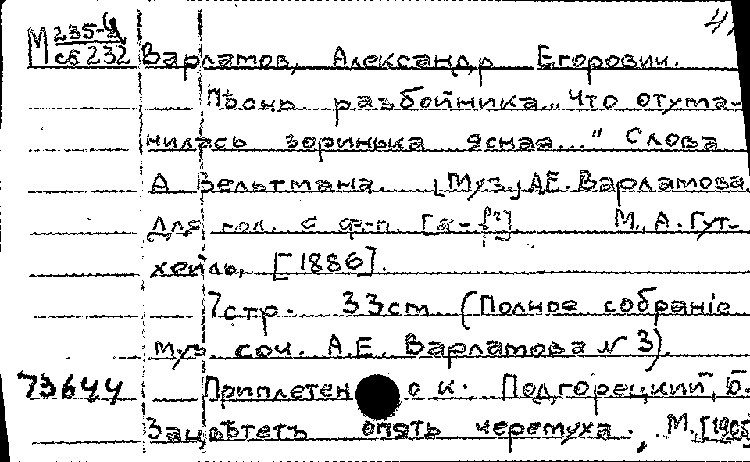 М 235-
сб 232 Варламов, Александр Егорович.
Пѣснь разбойника „Что отума-
нилась зоринька ясная..." Слова
А Вельтмана. [Муз.] А.Е. Варламова
для гол. с ф-п М., А. Гут-
хейль, [1886].
7 стр. 33 cm (Полное собранiе
муз. соч. А.Е. Варламова № 3).
73644 Приплетен к. Подгорецкий, Б.
Зацвѣтетъ опять черемуха. М.